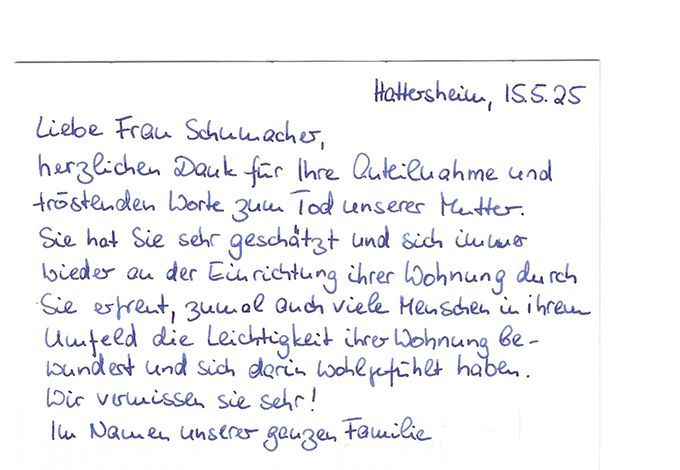 Hattersheim, 15.5.25
Liebe Frau Schumacher,
herzlichen Dank für Ihre Anteilnahme und
tröstenden Worte zum Tod unserer Mutter.
Sie hat Sie sehr geschätzt und sich immer
wieder an der Einrichtung ihrer Wohnung durch
Sie erfreut, zumal auch viele Menschen in ihrem
Umfeld die Leichtigkeit ihrer Wohnung be-
wundert und sich darin wohlgefühlt haben.
Wir vermissen sie sehr!
Im Namen unserer ganzen Familie